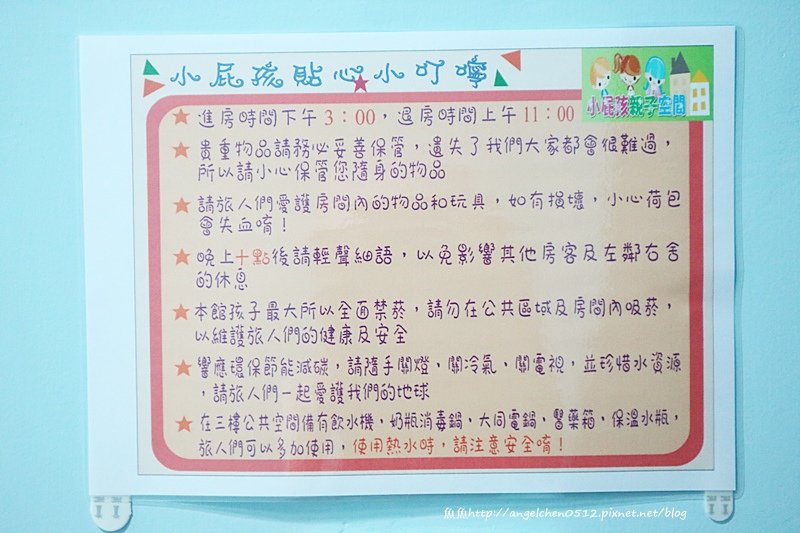 小屁孩貼心小叮嚀
小屁孩親子空間
★進房時間下午 3：00，退房時間上午 11：00
★貴重物品請務必妥善保管，遺失了我們大家都會很難過，
所以請小心保管您隨身的物品
★請旅人們愛護房間內的物品和玩具，如有損壞，小心荷包
會失血唷！
★晚上十點後請輕聲細語，以免影響其他房客及左鄰右舍
的休息
★本館孩子最大所以全面禁菸，請勿在公共區域及房間內吸菸，
以維護旅人們的健康及安全
★響應環保節能減碳，請隨手關燈、關冷氣、關電視，並珍惜水資源
，請旅人們一起愛護我們的地球
★在三樓公共空間備有飲水機、奶瓶消毒鍋、大同電鍋、醫藥箱、保溫水瓶，
旅人們可以多加使用，使用熱水時，請注意安全唷！
魚魚http://angelchen0512.pixnet.net/blog